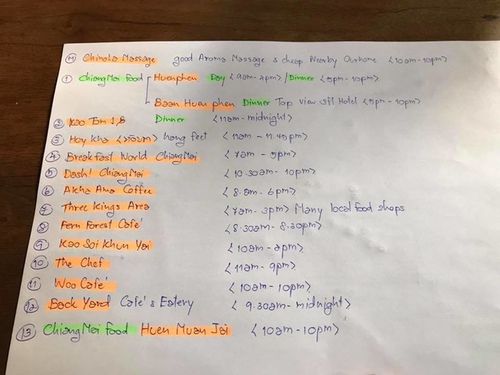 Chinola Massage good Aroma Massage & cheap Nearby Ourhome <10am-10pm>
① ChiangMai Food Huenphen Day <9am-4pm> / Dinner <5pm-10pm>
Baan Huen phen Dinner Top view off Hotel <5pm-10pm>
② Kao Tom 1,8 Dinner <11am-midnight>
③ Hoy Kha hang feet
④ Breakfast World ChiangMai <7am - 5pm>
⑤ Dash! ChiangMai <10.30am - 10pm>
⑥ Akha Ama Coffee <8.am - 6pm>
⑦ Three Kings Area <7am - 3pm> Many local food shops
⑧ Fern Forest Cafe' <8.30am - 8.30pm>
⑨ Kao Soi Khun Yai <10am - 2pm>
⑩ The Chef <11am - 9pm>
⑪ Woo Cafe' <10am - 10pm>
⑫ Back Yard Cafe' & Eatery <9.30am - midnight>
⑬ ChiangMai Food Huen Muan Jai <10am - 10pm>